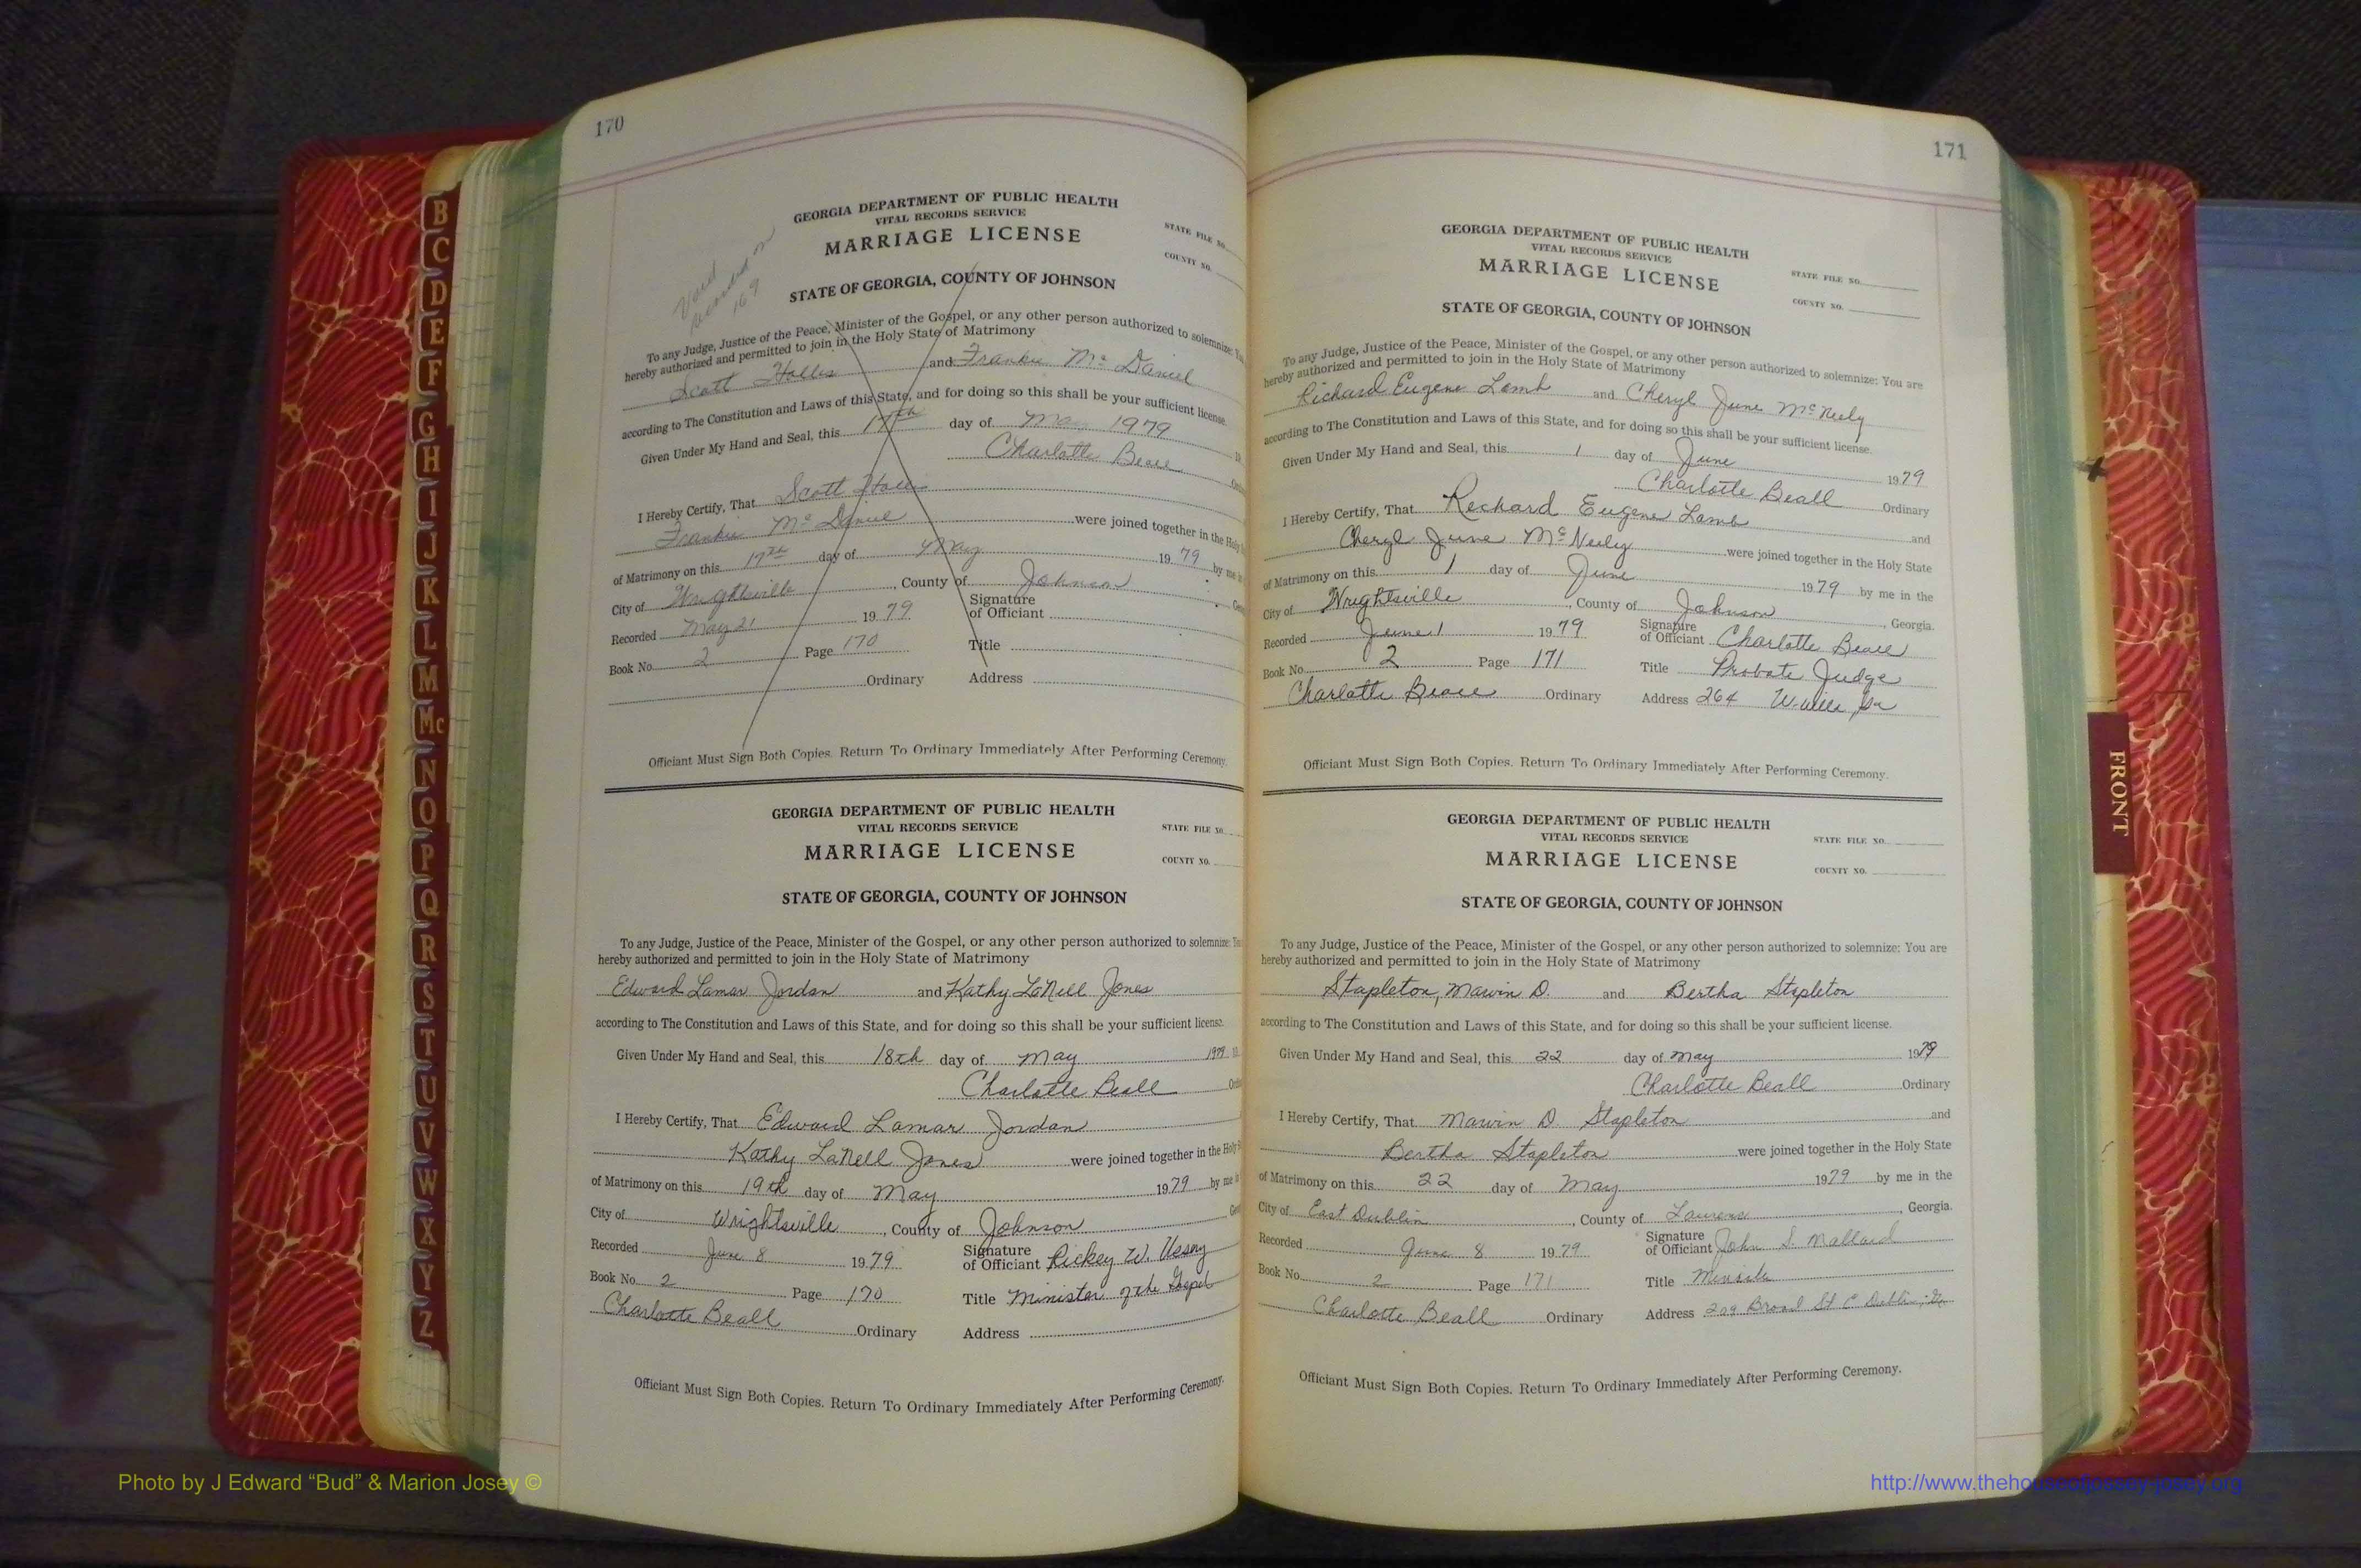 170
GEORGIA DEPARTMENT OF PUBLIC HEALTH
VITAL RECORDS SERVICE
MARRIAGE LICENSE
STATE FILE NO.
COUNTY NO.
STATE OF GEORGIA, COUNTY OF JOHNSON
Void
recorded on
169
To any Judge, Justice of the Peace, Minister of the Gospel, or any other person authorized to solemnize: You
hereby authorized and permitted to join in the Holy State of Matrimony
Scott Hollis and Frankie McDaniel
according to The Constitution and Laws of this State, and for doing so this shall be your sufficient license.
Given Under My Hand and Seal, this 17th day of May 1979
Charlotte Beall
I Hereby Certify, That Scott
Frankie McDaniel were joined together in the Holy
of Matrimony on this 17th day of May 1979 by me in
City of Wrightsville, County of Johnson
Recorded May 21 1979 Signature of Officiant
Book No. 2 Page 170 Title
Ordinary Address
Officiant Must Sign Both Copies. Return To Ordinary Immediately After Performing Ceremony.
GEORGIA DEPARTMENT OF PUBLIC HEALTH
VITAL RECORDS SERVICE
MARRIAGE LICENSE
STATE FILE NO.
COUNTY NO.
STATE OF GEORGIA, COUNTY OF JOHNSON
To any Judge, Justice of the Peace, Minister of the Gospel, or any other person authorized to solemnize: You
hereby authorized and permitted to join in the Holy State of Matrimony
Edward Lamar Jordan and Kathy LaNell Jones
according to The Constitution and Laws of this State, and for doing so this shall be your sufficient license.
Given Under My Hand and Seal, this 18th day of May 1979
Charlotte Beall
I Hereby Certify, That Edward Lamar Jordan
Kathy LaNell Jones were joined together in the Holy
of Matrimony on this 19th day of May 1979 by me in
City of Wrightsville, County of Johnson
Recorded June 8 1979 Signature of Officiant Rickey W.
Book No. 2 Page 170 Title Minister of the Gospel
Charlotte Beall Ordinary Address
Officiant Must Sign Both Copies. Return To Ordinary Immediately After Performing Ceremony.
171
GEORGIA DEPARTMENT OF PUBLIC HEALTH
VITAL RECORDS SERVICE
MARRIAGE LICENSE
STATE FILE NO.
COUNTY NO.
STATE OF GEORGIA, COUNTY OF JOHNSON
To any Judge, Justice of the Peace, Minister of the Gospel, or any other person authorized to solemnize: You are
hereby authorized and permitted to join in the Holy State of Matrimony
Richard Eugene Lamb and Cheryl June McNeely
according to The Constitution and Laws of this State, and for doing so this shall be your sufficient license.
Given Under My Hand and Seal, this 1 day of June 1979
Charlotte Beall Ordinary
I Hereby Certify, That Richard Eugene Lamb and
Cheryl June McNeely were joined together in the Holy State
of Matrimony on this 1 day of June 1979 by me in the
City of Wrightsville, County of Johnson, Georgia.
Recorded June 1 1979 Signature of Officiant Charlotte Beall
Book No. 2 Page 171 Title Probate Judge
Charlotte Beall Ordinary Address 264 W.ville, Ga
Officiant Must Sign Both Copies. Return To Ordinary Immediately After Performing Ceremony.
GEORGIA DEPARTMENT OF PUBLIC HEALTH
VITAL RECORDS SERVICE
MARRIAGE LICENSE
STATE FILE NO.
COUNTY NO.
STATE OF GEORGIA, COUNTY OF JOHNSON
To any Judge, Justice of the Peace, Minister of the Gospel, or any other person authorized to solemnize: You are
hereby authorized and permitted to join in the Holy State of Matrimony
Stapleton, Marvin D. and Bertha Stapleton
according to The Constitution and Laws of this State, and for doing so this shall be your sufficient license.
Given Under My Hand and Seal, this 22 day of May 1979
Charlotte Beall Ordinary
I Hereby Certify, That Marvin D. Stapleton and
Bertha Stapleton were joined together in the Holy State
of Matrimony on this 22 day of May 1979 by me in the
City of East Dublin, County of Laurens, Georgia.
Recorded June 8 1979 Signature of Officiant John S. Mallard
Book No. 2 Page 171 Title Minister
Charlotte Beall Ordinary Address 209 Broad St E Dublin, Ga
Officiant Must Sign Both Copies. Return To Ordinary Immediately After Performing Ceremony.
B
C
D
E
F
G
H
I
J
K
L
M
Mc
N
O
P
Q
R
S
T
U
V
W
X
Y
Z
FRONT
Photo by J Edward “Bud” & Marion Josey ©
http://www.thehouseofjossey-josey.org